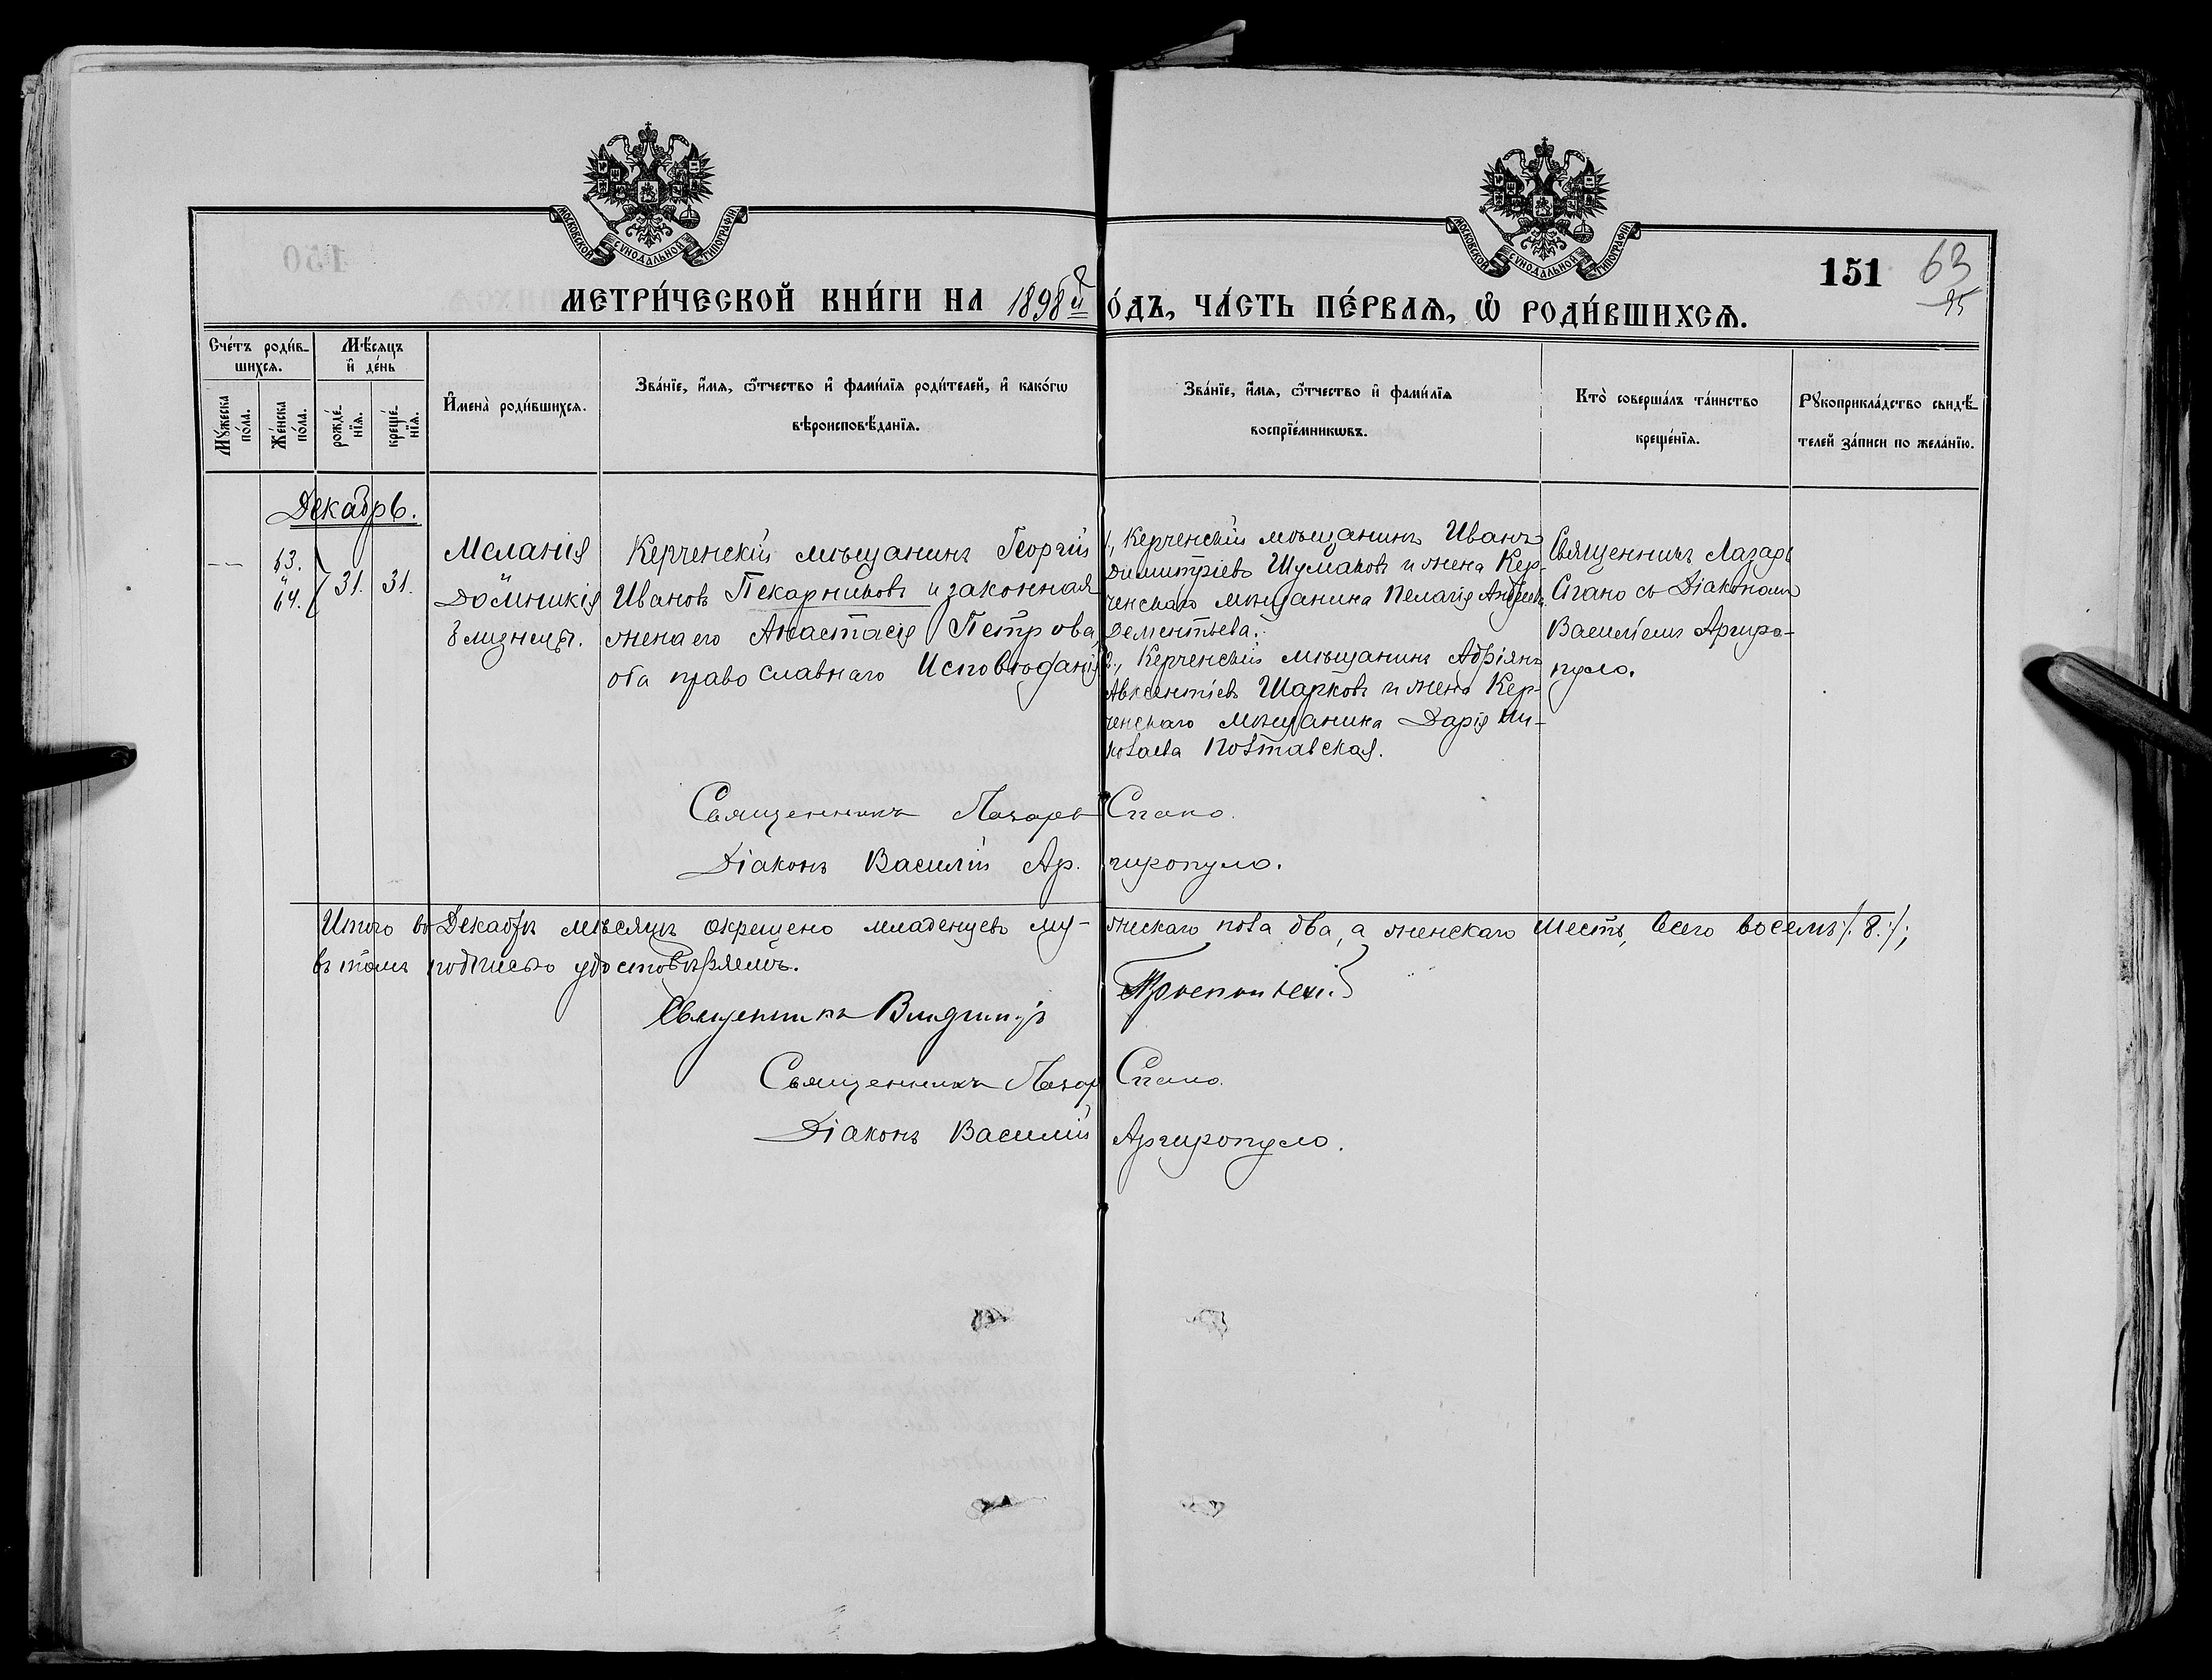 МОСКОВСКОЙ СѴНОДАЛЬНОЙ ТИПОГРАФІИ
МОСКОВСКОЙ СѴНОДАЛЬНОЙ ТИПОГРАФІИ
151
63
95
МЕТРИ́ЧЕСКОЙ КНИ́ГИ НА 1898й Го́ДЪ, ЧА́СТЬ ПЕ́РВАѦ, Ѡ҆ РОДИ́ВШИХСѦ.
Сче́тъ роди́в-
шихсѧ.
Мѣ́сѧцъ
и҆ де́нь
Мꙋ́жеска
по́ла.
Же́нска
по́ла.
рожде́-
нїѧ.
креще́-
нїѧ.
И҆мена̀ роди́вшихсѧ.
Зва́нїе, и҆́мѧ, ѻ҆́тчество и҆ фами́лїѧ роди́телей, и҆ како́гѡ
вѣроисповѣ́данїѧ.
Зва́нїе, и҆́мѧ, ѻ҆́тчество и҆ фами́лїѧ
воспрїе́мникѡвъ.
Кто̀ соверша́лъ та́инство
креще́нїѧ.
Рꙋкоприкла́дство свидѣ́-
телей за́писи по жела́нїю.
Декабрь.
63.
и
64.
31. 31.
Меланія
и
Домникія
близнецы.
Керченскій мѣщанинъ Георгій
Ивановъ Пекарниковъ и законная
жена его Анастасія Петрова,
оба православнаго Исповѣданія
1, Керченскій мѣщанинъ Иванъ
Димитріевъ Шумаковъ и жена Кер-
ченскаго мѣщанина Пелагія Андреева
Дементьева.
2, Керченскій мѣщанинъ Адріянъ
Авксентіевъ Шарковъ и жена Кер-
ченскаго мѣщанина Дарія Ни-
колаева Полтавская.
Священникъ Лазарь
Спано съ Діакономъ
Василіемъ Аргиро-
пуло.
Священникъ Лазарь Спано.
Діаконъ Василій Аргиропуло.
Итого въ Декабрѣ мѣсяцѣ окрещено младенцевъ мужескаго пола два, а женскаго шесть, всего восемь /. 8. /;
въ томъ подписью удостовѣряемъ.
Священникъ Владиміръ
Священникъ Лазарь Спано.
Діаконъ Василій Аргиропуло.